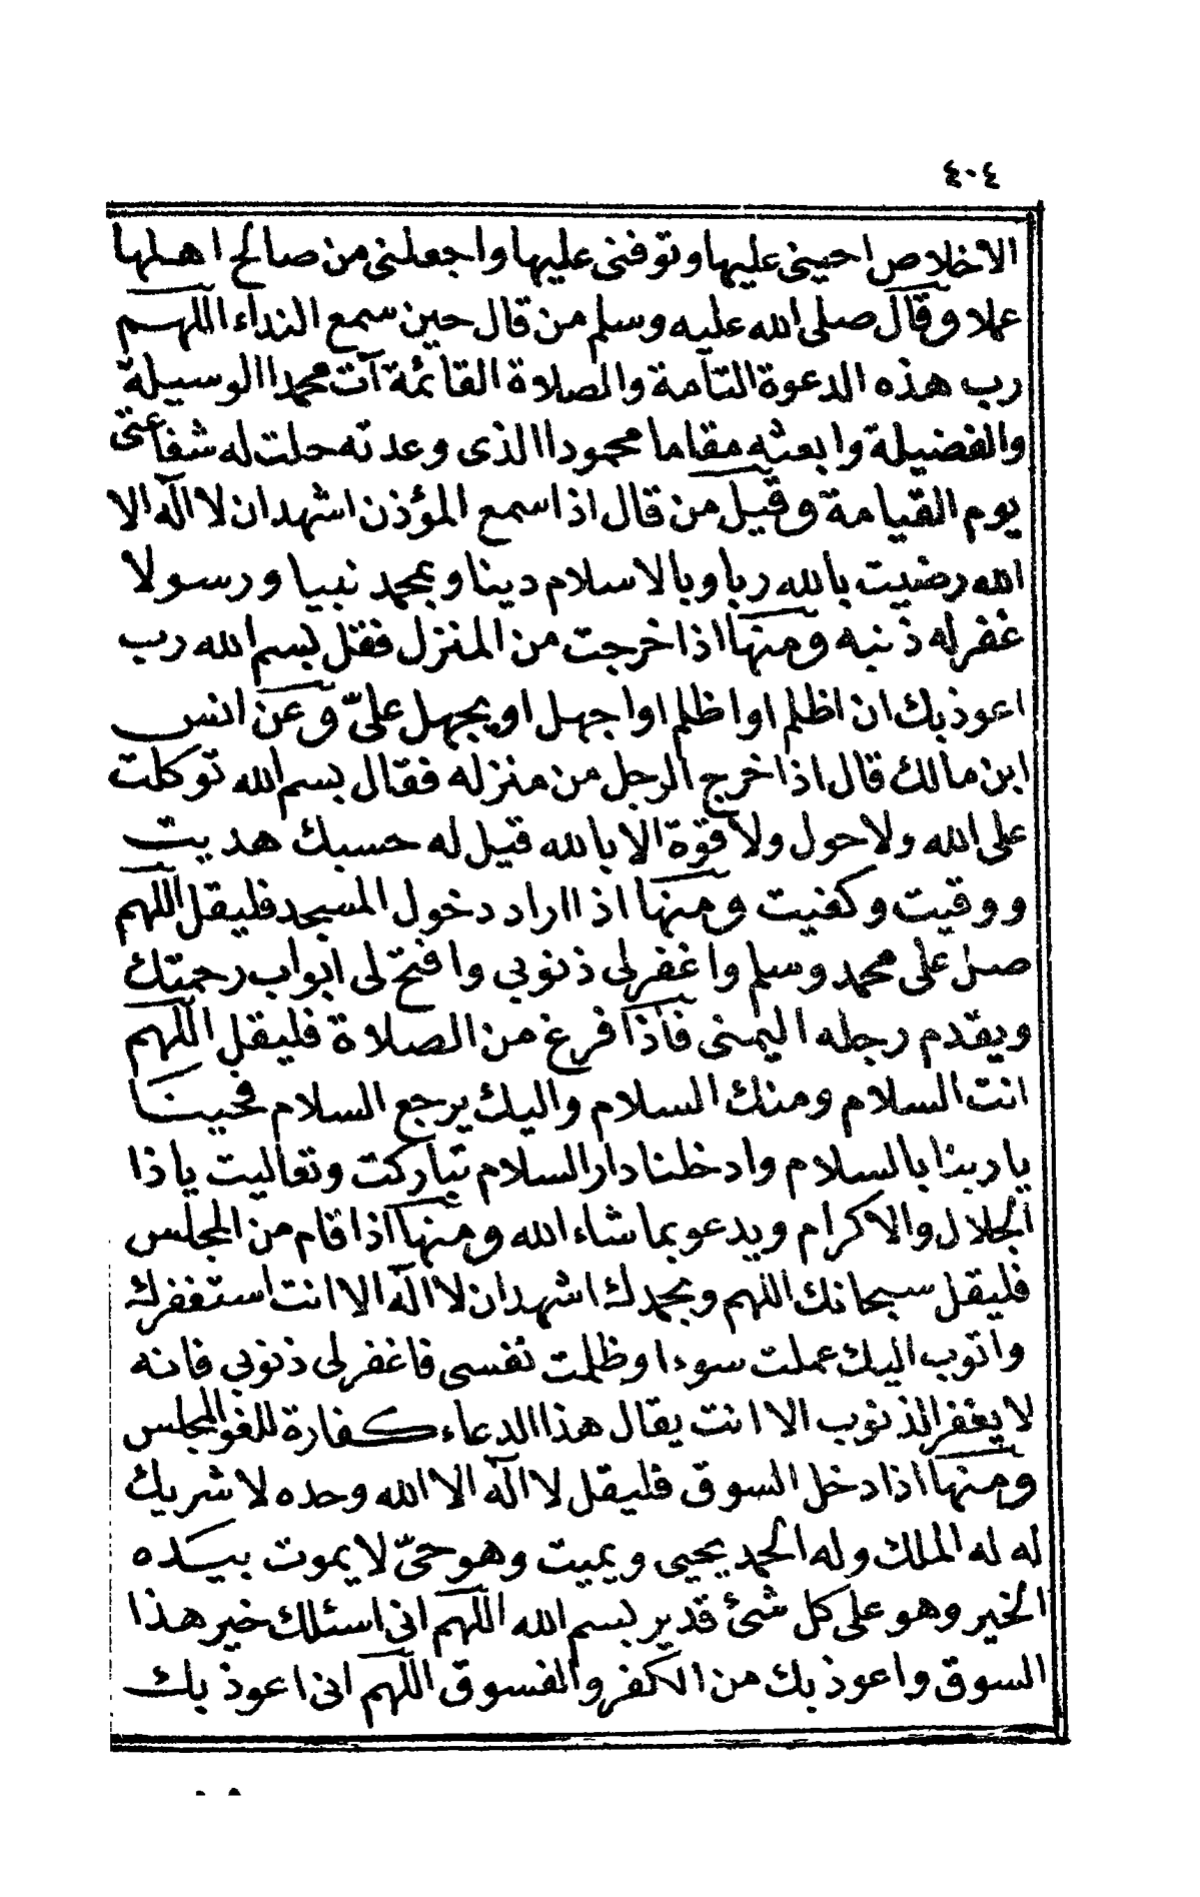 ٤٠٤
الاخلاص احينى عليها وتوفنى عليها واجعلنى من صالح اهلها
عملا وقال صلى الله عليه وسلم من قال حين سمع النداء اللهم
رب هذه الدعوة التآمة والصلاة القائمة آت محمدا الوسيلة
والفضيلة وابعثه مقاما محمودا الذى وعدته حلت له شفاعتى
يوم القيامة وقيل من قال اذا سمع المؤذن اشهد ان لا اله الا
الله رضيت بالله ربا وبالاسلام دينا وبمحمد نبيا ورسولا
غفر له ذنبه ومنها اذا خرجت من المنزل فقل بسم الله رب
اعوذ بك ان اظلم او اظلم او اجهل او يجهل علىّ وعن انس
ابن مالك قال اذا خرج الرجل من منزله فقال بسم الله توكلت
على الله ولا حول ولا قوة الا بالله قيل له حسبك هديت
ووقيت وكفيت ومنها اذا اراد دخول المسجد فليقل اللهم
صل على محمد وسلم واغفر لى ذنوبى وافتح لى ابواب رحمتك
ويقدم رجله اليمنى فاذا فرغ من الصلاة فليقل اللهم
انت السلام ومنك السلام واليك يرجع السلام فحينا
يا ربنا بالسلام وادخلنا دار السلام تباركت وتعاليت يا ذا
الجلال والاكرام ويدعو بما شاء الله ومنها اذا قام من المجلس
فليقل سبحانك اللهم وبحمدك اشهد ان لا اله الا انت استغفرك
واتوب اليك عملت سوءا وظلمت نفسى فاغفر لى ذنوبى فانه
لا يغفر الذنوب الا انت يقال هذا الدعاء كفارة للغو المجلس
ومنها اذا دخل السوق فليقل لا اله الا الله وحده لا شريك
له له الملك وله الحمد يحيى ويميت وهو حىّ لا يموت بيده
الخير وهو على كل شئ قدير بسم الله اللهم انى اسئلك خير هذا
السوق واعوذ بك من الكفر والفسوق اللهم انى اعوذ بك